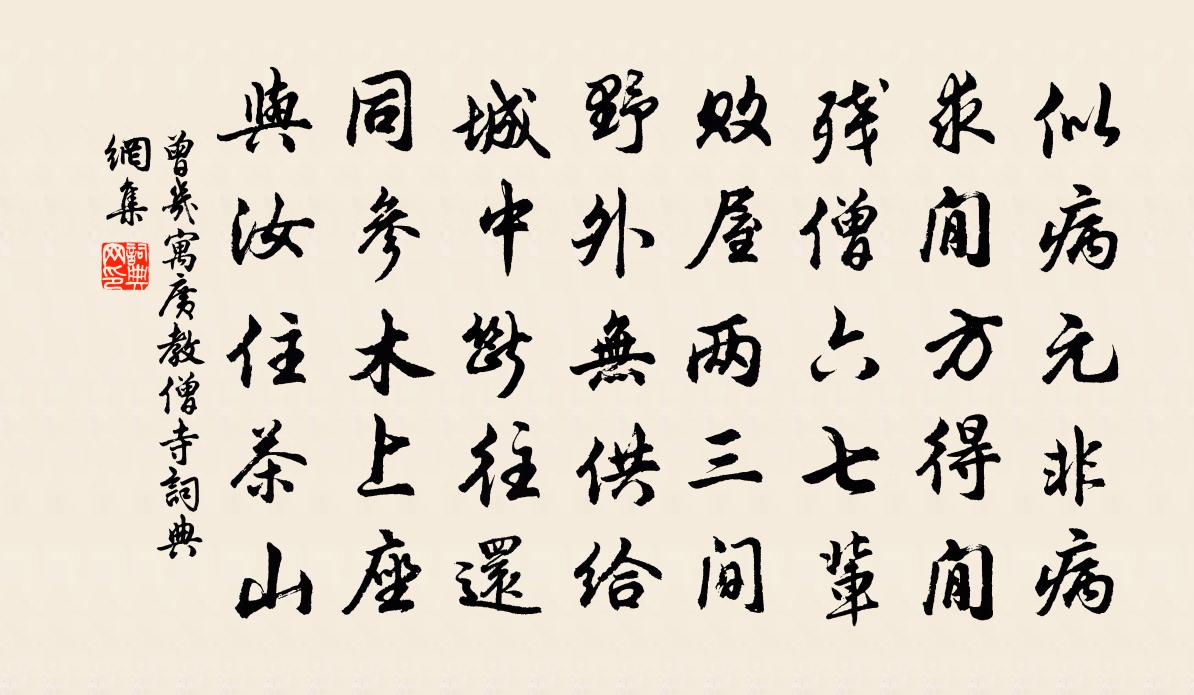 似病元非病
求閒方得閒
残僧六七輩
敗屋两三間
野外無供給
城中斷往還
同參木上座
與汝住茶山
曾幾寓廣教僧寺詞典
網集
詞典網印